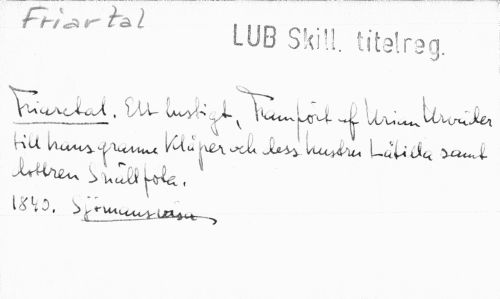 Friartal
LUB Skill. titelreg.
Friaretal. Ett lustigt, Framfört af Urian Urväder
till hans granne Kläper och dess hustru Lätilla samt
dottren Snällfota.
1840. Sjömansvisa